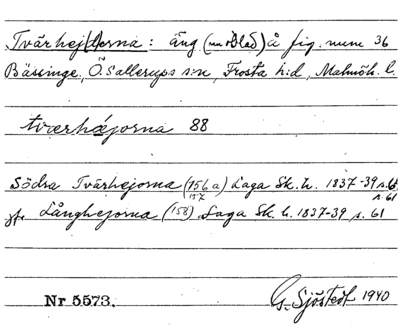 Tvärhej(d)erna: äng (nu Blad) å fig. num 36
Bässinge, Ö Sallerups s:n, Frosta h:d, Malmöh. l.
tværhæjorna 88
Södra Tvärhejorna (156 a) Laga Sk. h. 1837-39 s. 6
157 s 61
jfr Långhejorna (158) Laga Sk. h. 1837-39 s. 61
Nr 5573. G. Sjöstedt 1940